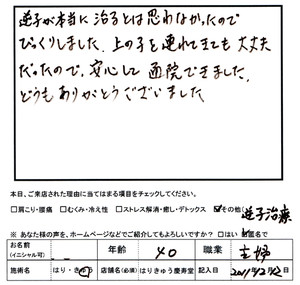 逆子が本当に治るとは思わなかったので
びっくりしました。上の子を連れてきても大丈夫
だったので、安心して通院できました。
どうもありがとうございました
本日、ご来店された理由に当てはまる項目をチェックしてください。
□肩こり・腰痛 □むくみ・冷え性 □ストレス解消・癒し・デトックス ☑その他(逆子治療
※ あなた様の声を、ホームページなどでご紹介してもよろしいですか？ □はい ☑匿名で
お名前 (イニシャル可) 年齢 40 職業 主婦
施術名 はり・きゅう 店舗名(必須) はりきゅう慶寿堂 記入日